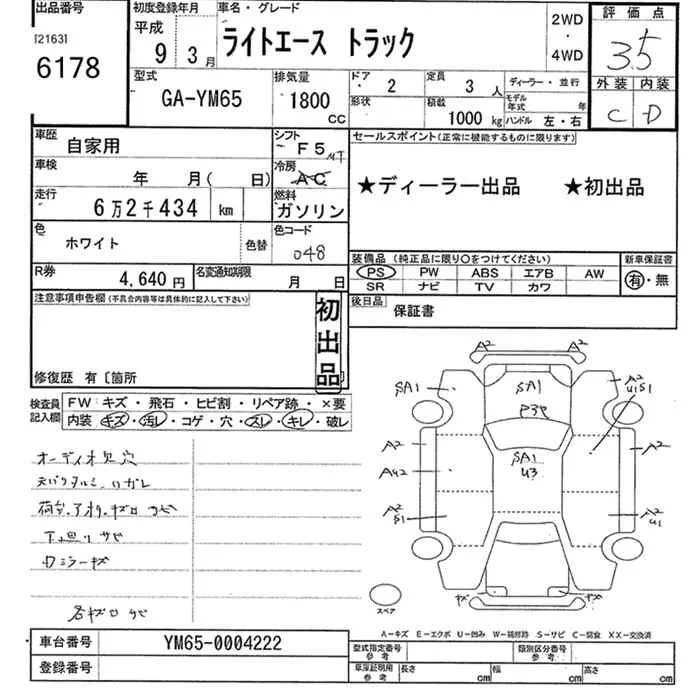 出品番号
[2163]
6178
初度登録年月
平成
9年3月
車名・グレード
ライトエース トラック
2WD
・
4WD
評価点
3.5
外装 内装
C D
型式
GA-YM65
排気量
1800
CC
ドア
・2
定員
3人
ディーラー・並行
形状
積載
1000kg
モデル年式 年
ハンドル 左・右
車歴
自家用
シフト
F5 MT
車検
年 月( 日)
冷房
AC
走行
6万2千434 km
燃料
ガソリン
色
ホワイト
色替
色コード
048
R券
4,640円
名変通知期限
月 日
セールスポイント(正常に機能するものに限ります)
★ディーラー出品 ★初出品
装備品(純正品に限り○をつけてください)
PS PW ABS エアB AW
SR ナビ TV カワ
新車保証書
有・無
後日品
保証書
注意事項申告欄(不具合内容等は具体的に記入して下さい)
初出品
修復歴 有〔箇所
検査員記入欄
FW:キズ・飛石・ヒビ割・リペア跡・×要
内装 キズ・汚レ・コゲ・穴・スレ・キレ・破レ
オーディオ欠穴
下回りサビ
Dミラーキズ
各キズロサビ
A2 A2
SA1 SA1 A2
U1S1
P3P
A2 SA1 A2
AU2 U3
A2 A2
S1 U1
キズ キズ
スペア
A-キズ E-エクボ U-凹み W-補修跡 S-サビ C-腐食 XX-交換済
車台番号
YM65-0004222
登録番号
型式指定番号
参考
類別区分番号
参考
車庫証明用
参考
長さ cm 幅 cm 高さ cm